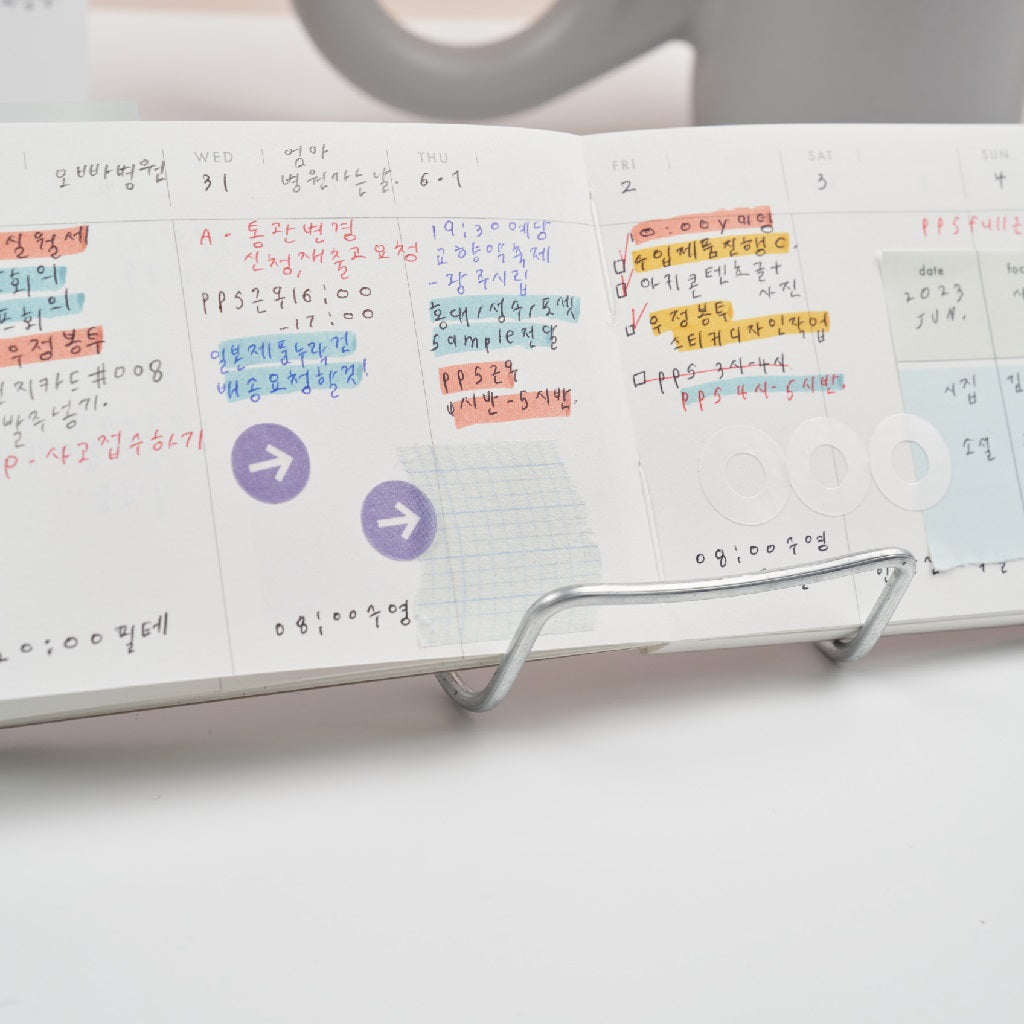 오빠병원
실월세
회의
회의
우정봉투
지카드#008
발주넣기.
P-사고접수하기
0:00필테
WED
31
엄마
병원가는날.
A-통관변경
신청,재출고요청
PPS근무16:00
-17:00
일본제품누락건
배송요청할것!
08:00수영
THU
6.1
19:30예당
교향악축제
-광주시립
홍대/성수/포셋
sample전달
PPS근무
4시반-5시반.
FRI
2
0:00y미팅
수입제품진행
아키콘텐츠글+
사진
우정봉투
스티커디자인작업
PPS 3시-4시
PPS 4시-5시반.
08:00수영
SAT
3
SUN
4
PPSfull
date
2023
JUN.
시집
소설